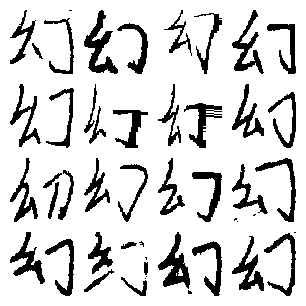 幻幻幻幻
幻幻幻幻
幻幻幻幻
幻幻幻幻